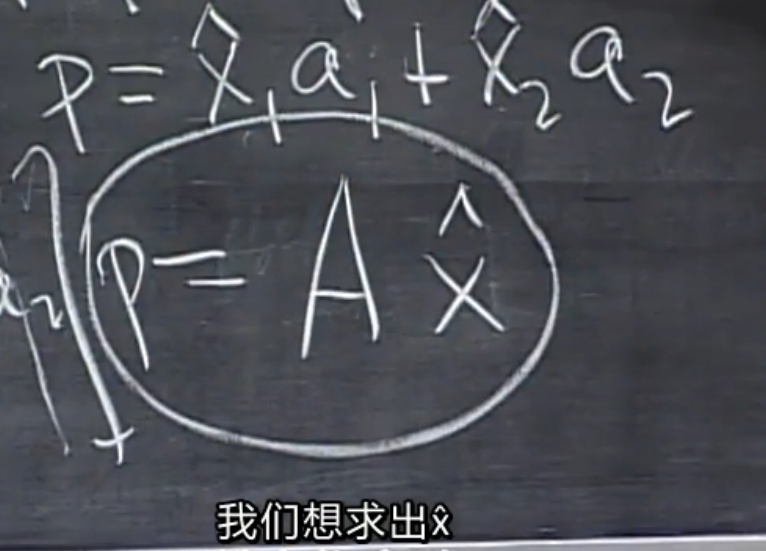 p = x̂₁ a₁ + x̂₂ a₂
p = A x̂
我们想求出x̂